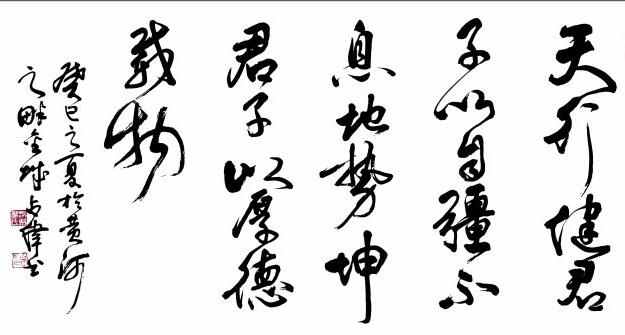 天行健君
子以自彊不
息地勢坤
君子以厚德
載物
癸巳之夏於黄河
之畔金城偉书